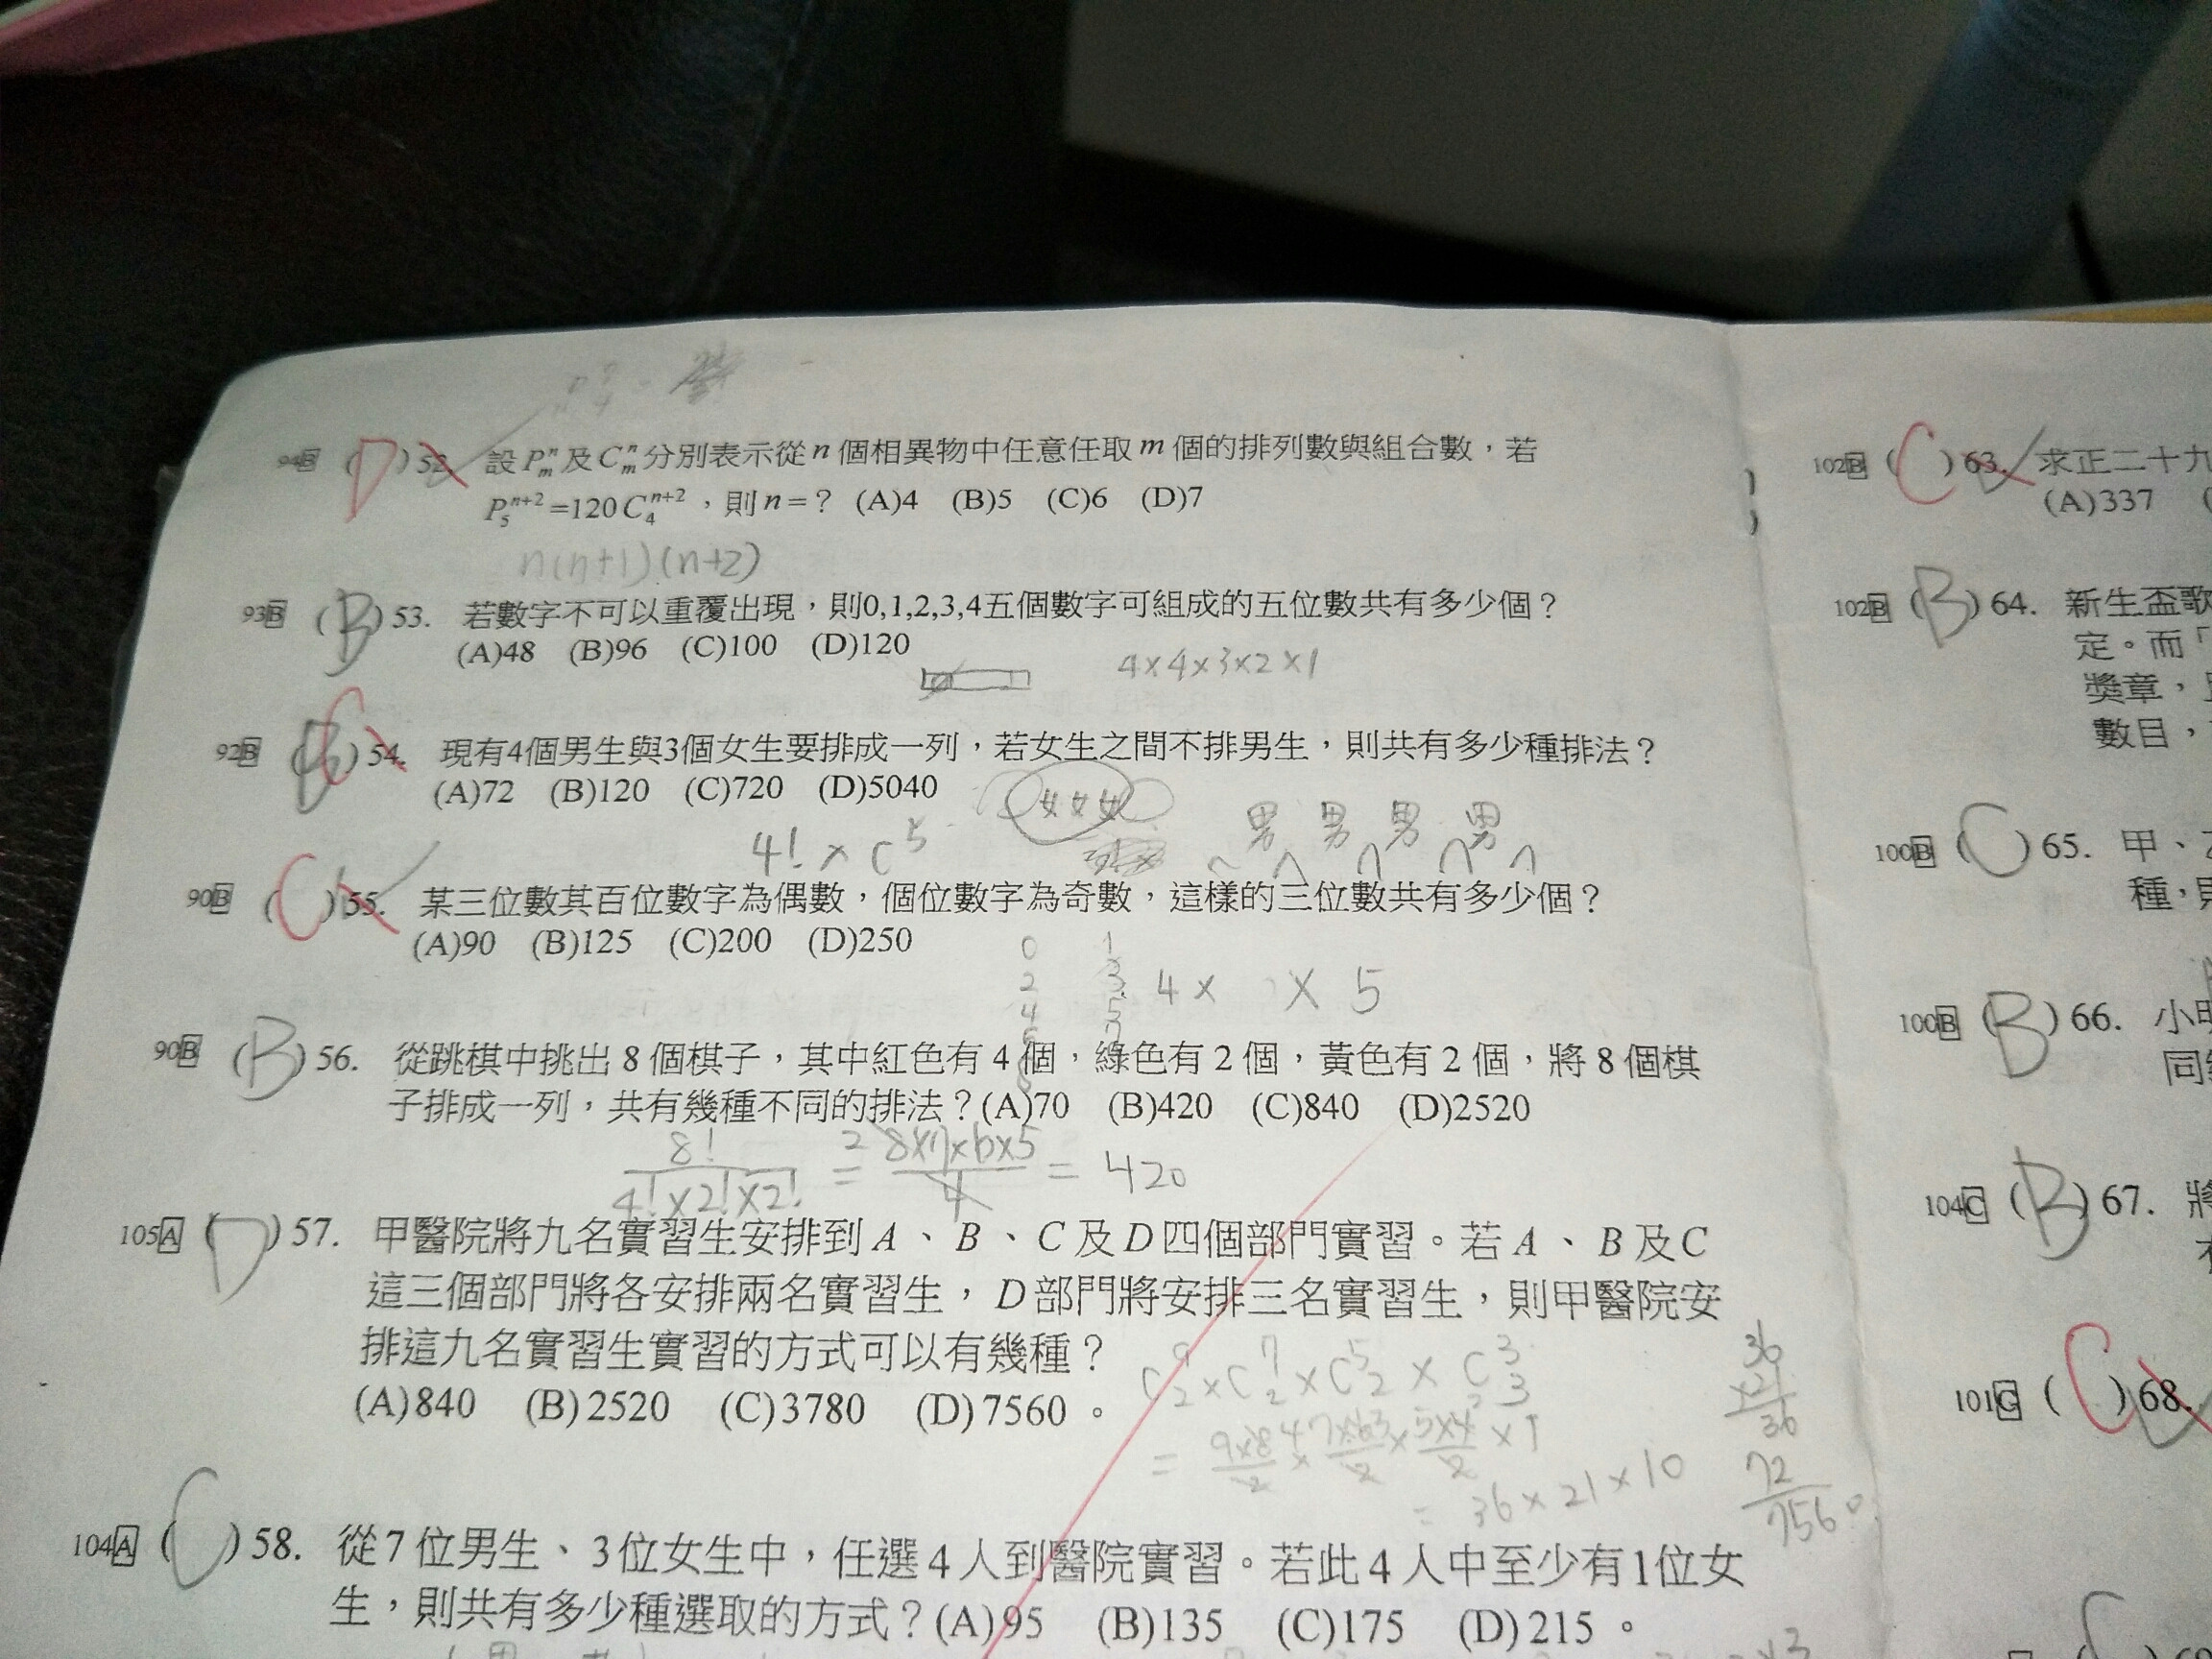 94B (D) 52. 設 P^n_m 及 C^n_m 分別表示從 n 個相異物中任意任取 m 個的排列數與組合數，若
P^{n+2}_5=120C^{n+2}_4，則n=？ (A)4 (B)5 (C)6 (D)7
n(n+1)(n+2)
93B (B) 53. 若數字不可以重覆出現，則0,1,2,3,4五個數字可組成的五位數共有多少個？
(A)48 (B)96 (C)100 (D)120
4×4×3×2×1
92B (C) 54. 現有4個男生與3個女生要排成一列，若女生之間不排男生，則共有多少種排法？
(A)72 (B)120 (C)720 (D)5040
女女女
男 男 男 男
4! × C^5
90B (C) 55. 某三位數其百位數字為偶數，個位數字為奇數，這樣的三位數共有多少個？
(A)90 (B)125 (C)200 (D)250
0 1
2 3
4 5
4× × 5
90B (B) 56. 從跳棋中挑出 8 個棋子，其中紅色有 4 個，綠色有 2 個，黃色有 2 個，將 8 個棋
子排成一列，共有幾種不同的排法？(A)70 (B)420 (C)840 (D)2520
8!/(4!×2!×2!) = 8×7×6×5/4 = 420
105A (D) 57. 甲醫院將九名實習生安排到 A、B、C 及 D 四個部門實習。若 A、B 及 C
這三個部門將各安排兩名實習生，D 部門將安排三名實習生，則甲醫院安
排這九名實習生實習的方式可以有幾種？
(A)840 (B)2520 (C)3780 (D)7560。
C^9_2×C^7_2×C^5_2×C^3_3
= 9×8/2 × 7×6/2 × 5×4/2 ×1
= 36×21×10
36
×21
36
72
7560
104A (C) 58. 從7位男生、3位女生中，任選4人到醫院實習。若此4人中至少有1位女
生，則共有多少種選取的方式？(A)95 (B)135 (C)175 (D)215。
102B (C) 63. 求正二十九
(A)337
102B (B) 64. 新生盃歌
定。而「
獎章，
數目，
100B (C) 65. 甲、
種，則
100B (B) 66. 小明
同
104C (B) 67. 將
101C (C) 68.